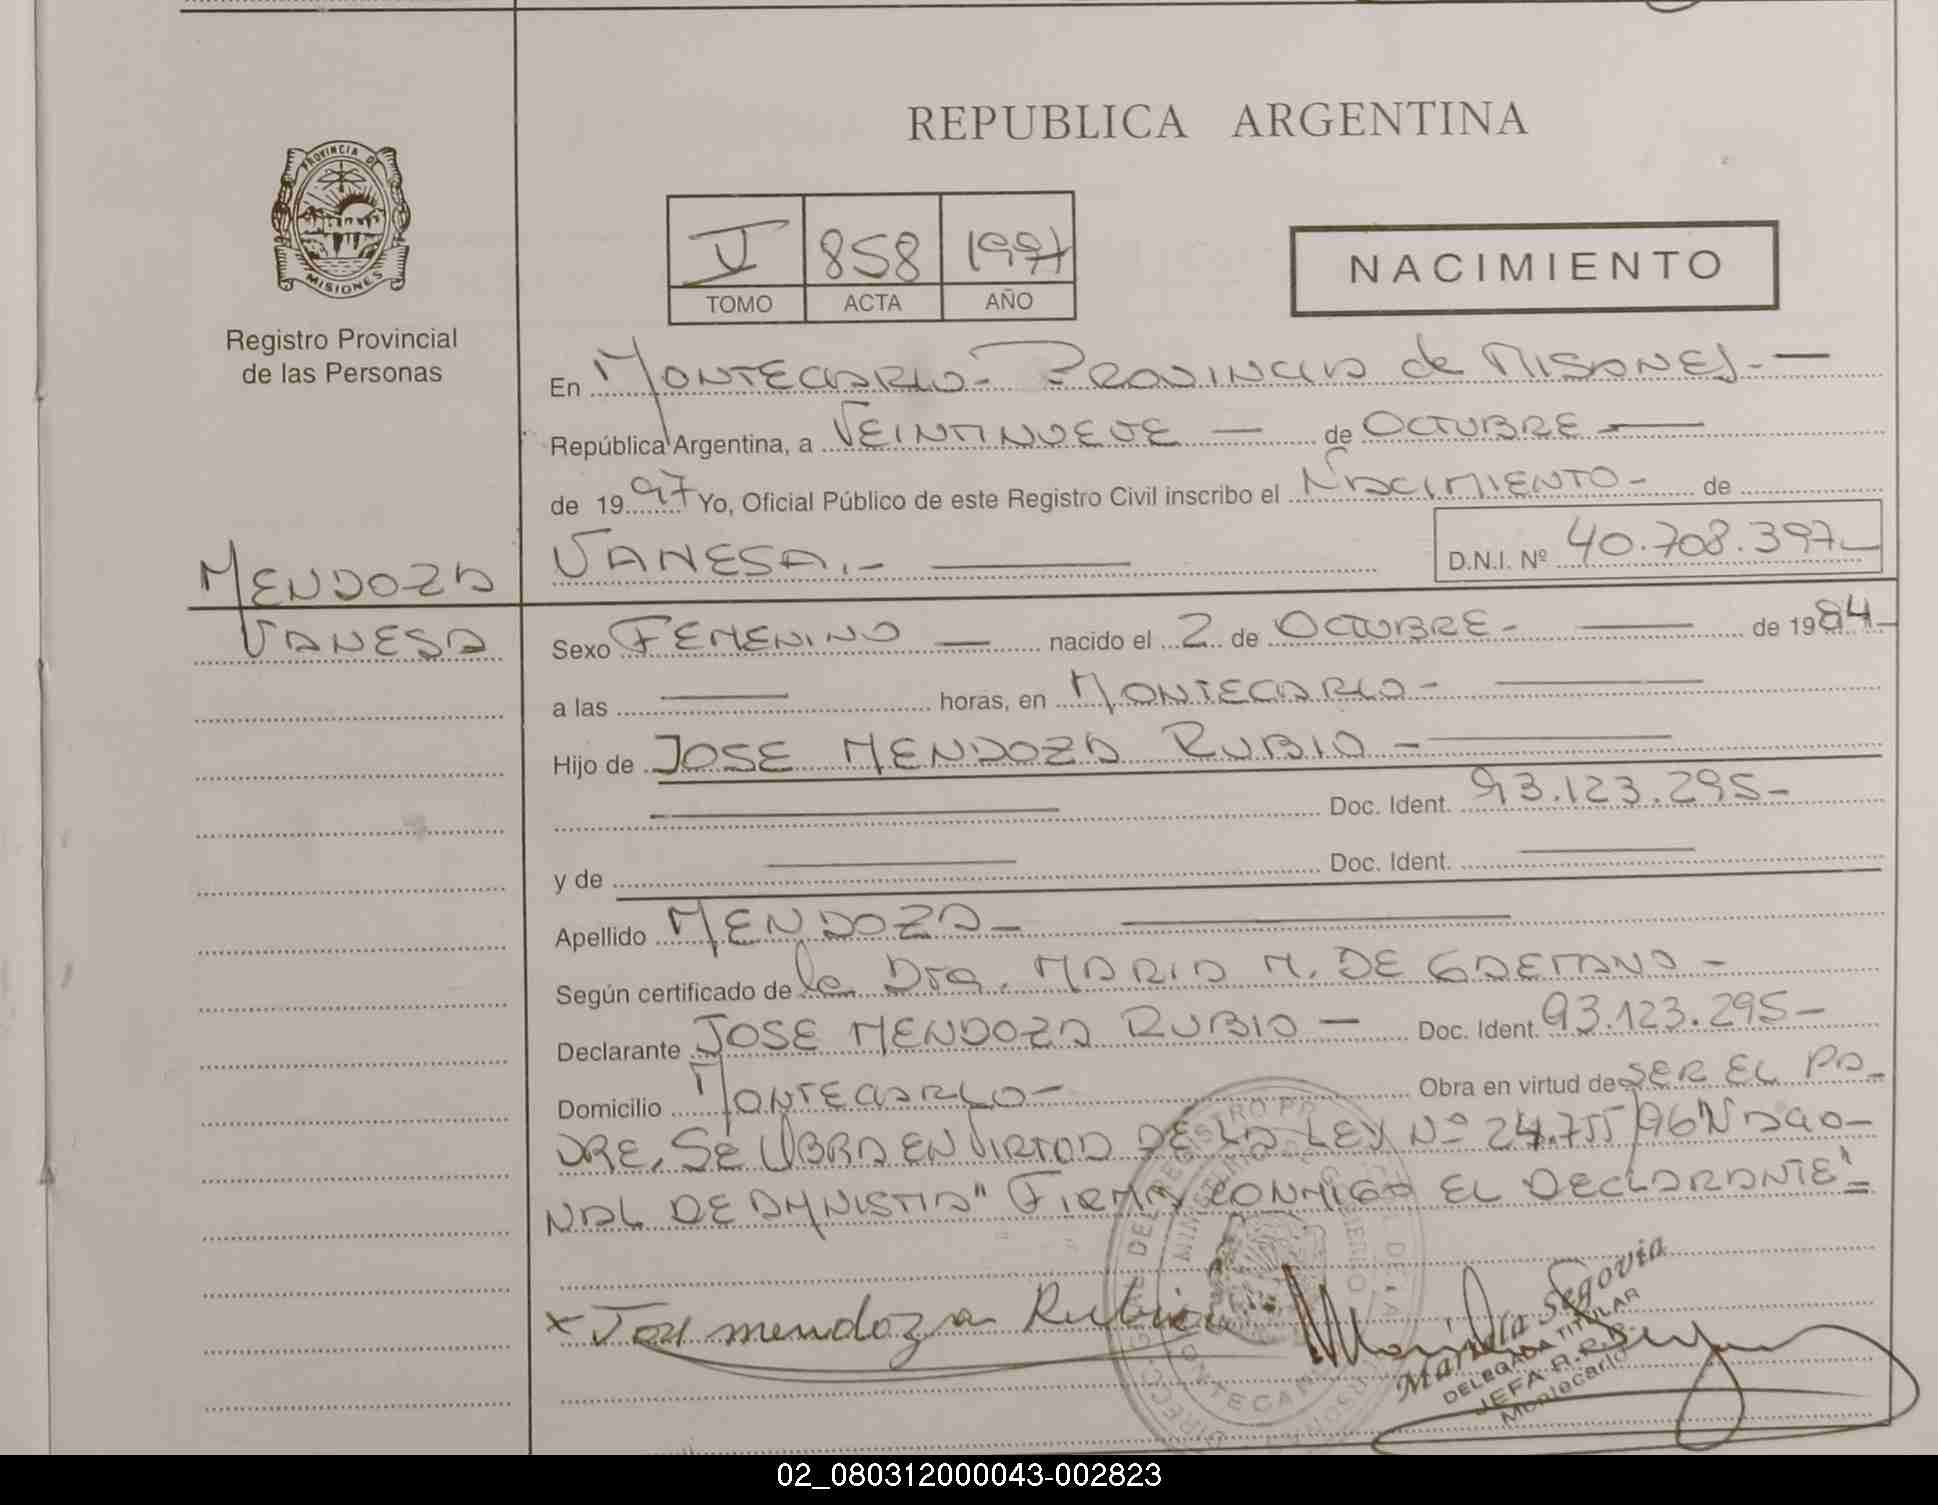 REPUBLICA ARGENTINA
PROVINCIA DE
MISIONES
Registro Provincial
de las Personas
V 858 1997
TOMO ACTA AÑO
NACIMIENTO
En MONTECARLO - PROVINCIA de MISIONES.-
República Argentina, a VEINTINUEVE de OCTUBRE
de 1997 Yo, Oficial Público de este Registro Civil inscribo el NACIMIENTO - de
VANESA.- D.N.I. Nº 40.708.397-
MENDOZA
VANESA
Sexo FEMENINO nacido el 2 de OCTUBRE - de 1984-
a las horas, en MONTECARLO -
Hijo de JOSE MENDOZA RUBIO -
Doc. Ident. 93.123.295-
y de Doc. Ident.
Apellido MENDOZA -
Según certificado de la Dra. MARIA M. DE GAETANO -
Declarante JOSE MENDOZA RUBIO - Doc. Ident. 93.123.295-
Domicilio MONTECARLO - Obra en virtud de SER EL PA-
DRE. SE LABRA EN VIRTUD DE LA LEY Nº 24.755/96 "NACIO-
NAL DE AMNISTIA" FIRMA CONMIGO EL DECLARANTE".=
x Jose mendoza Rubio
Mariela Segovia
DELEGADA TITULAR
JEFA R.R.P.
Montecarlo
02_080312000043-002823